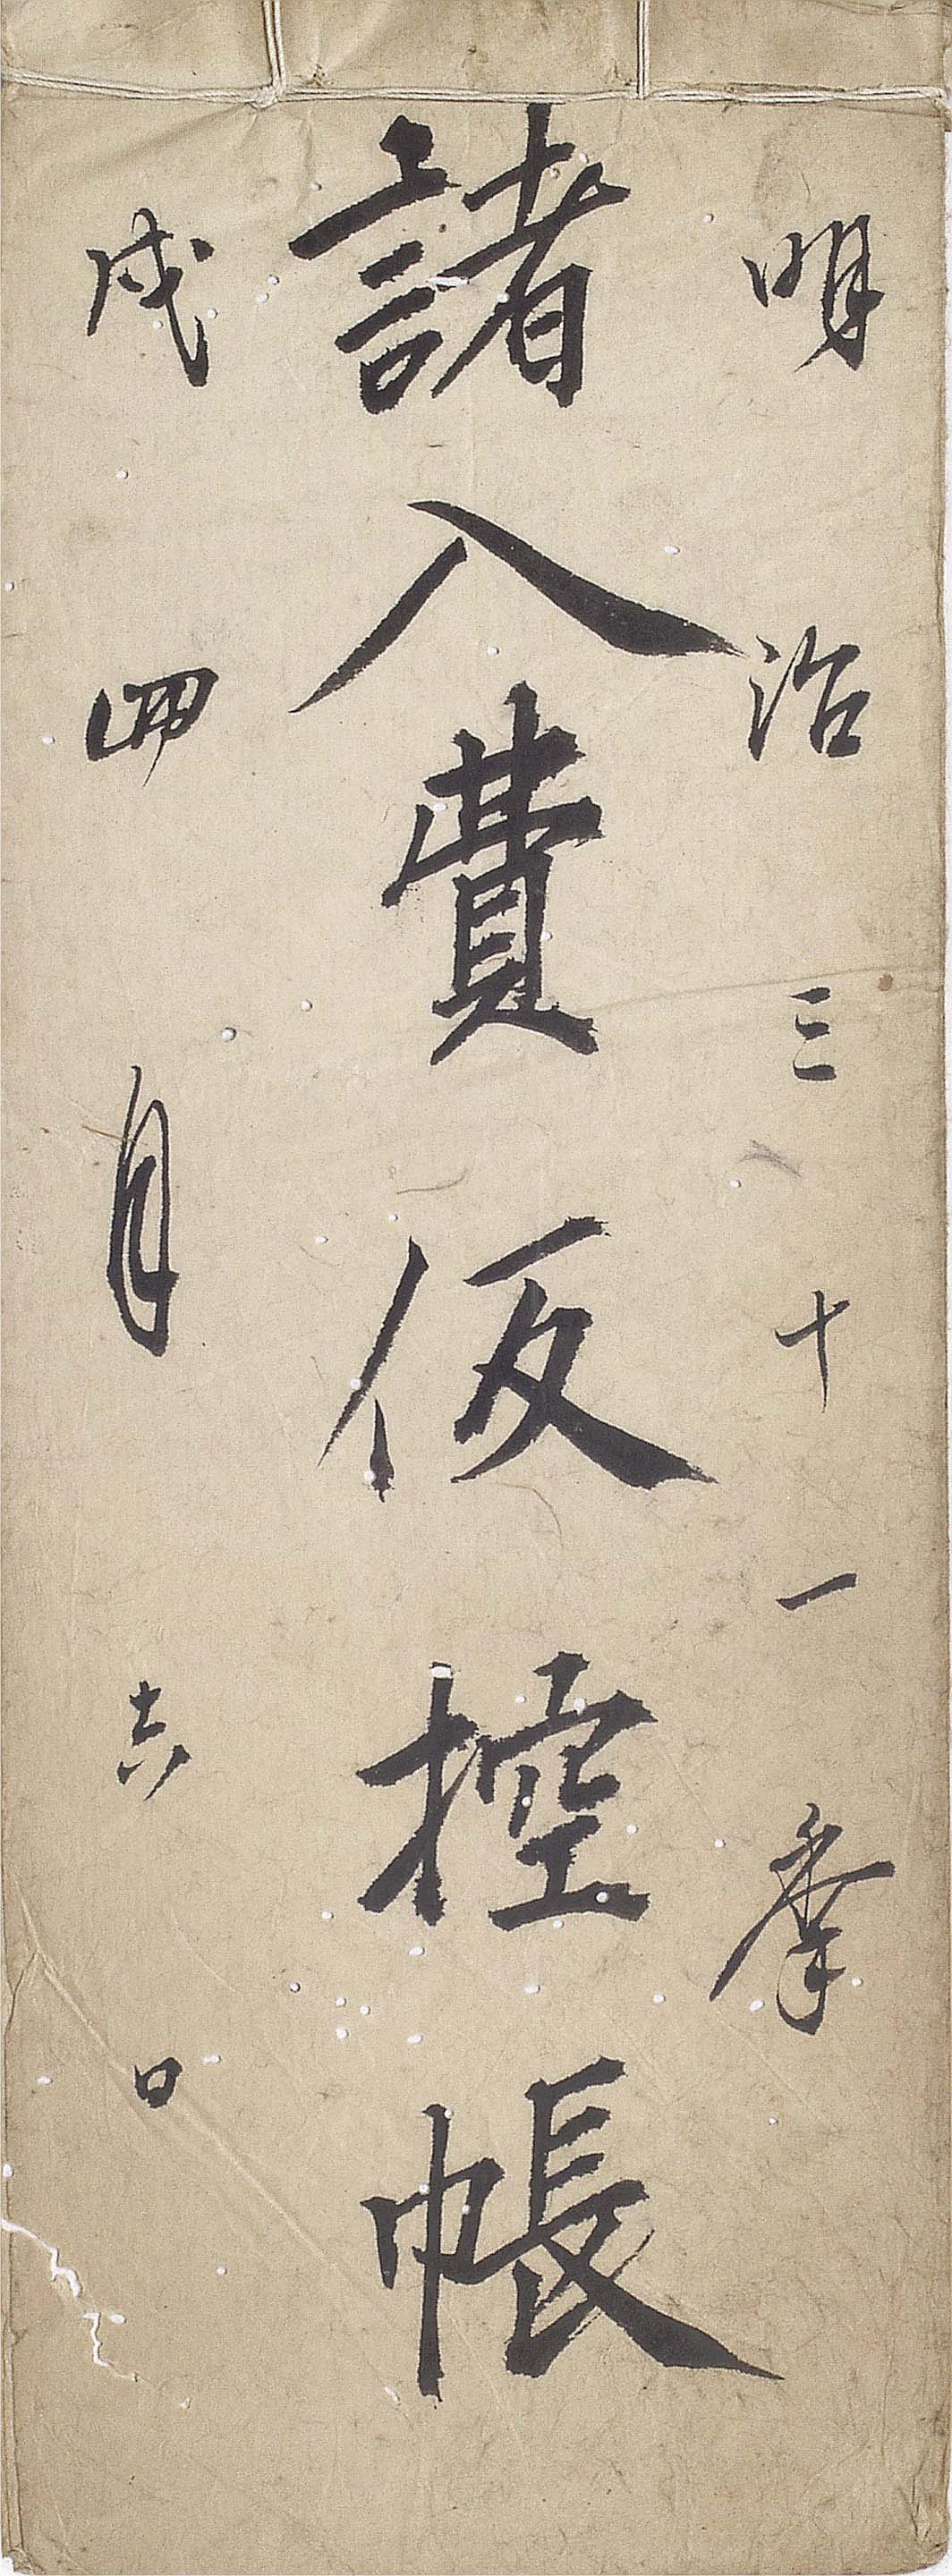 明治三十一秊
諸入費仮控帳
戌四月吉日